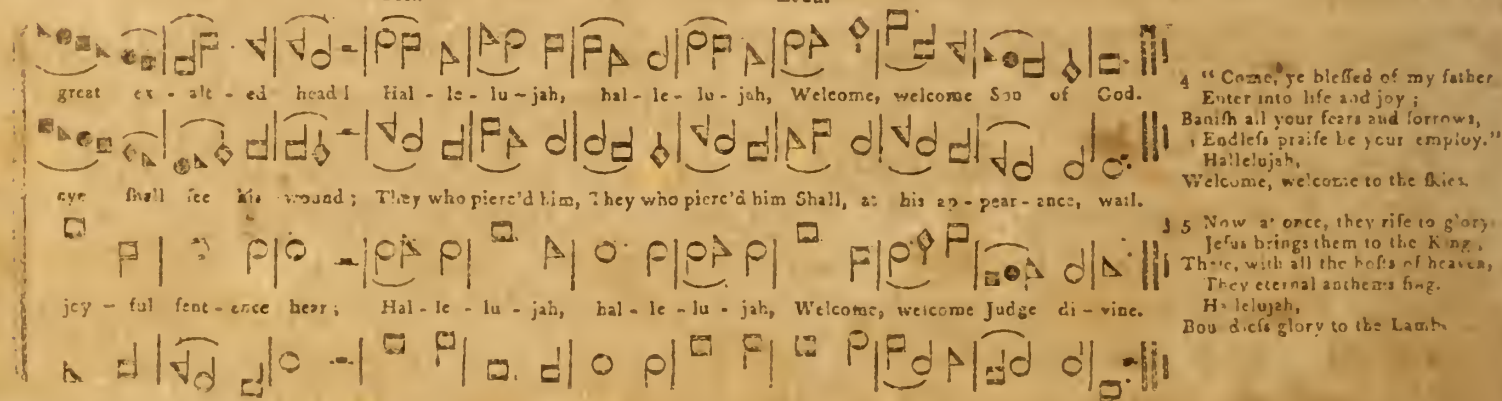 great ex - alt - ed head! Hal - le - lu - jah, hal - le - lu - jah, Welcome, welcome Son of God.
eye ſhall ſee his wound; They who pierc'd him, They who pierc'd him Shall, at his ap - pear - ance, wail.
joy - ful ſent - ence hear; Hal - le - lu - jah, hal - le - lu - jah, Welcome, welcome Judge di - vine.
4 “Come, ye bleſſed of my father
Enter into life and joy;
Baniſh all your fears and ſorrows,
Endleſs praiſe be your employ.”
Hallelujah,
Welcome, welcome to the ſkies.
5 Now at once, they riſe to glory
Jeſus brings them to the King,
There, with all the hoſts of heaven,
They eternal anthems ſing.
Hallelujah,
Boundleſs glory to the Lamb.